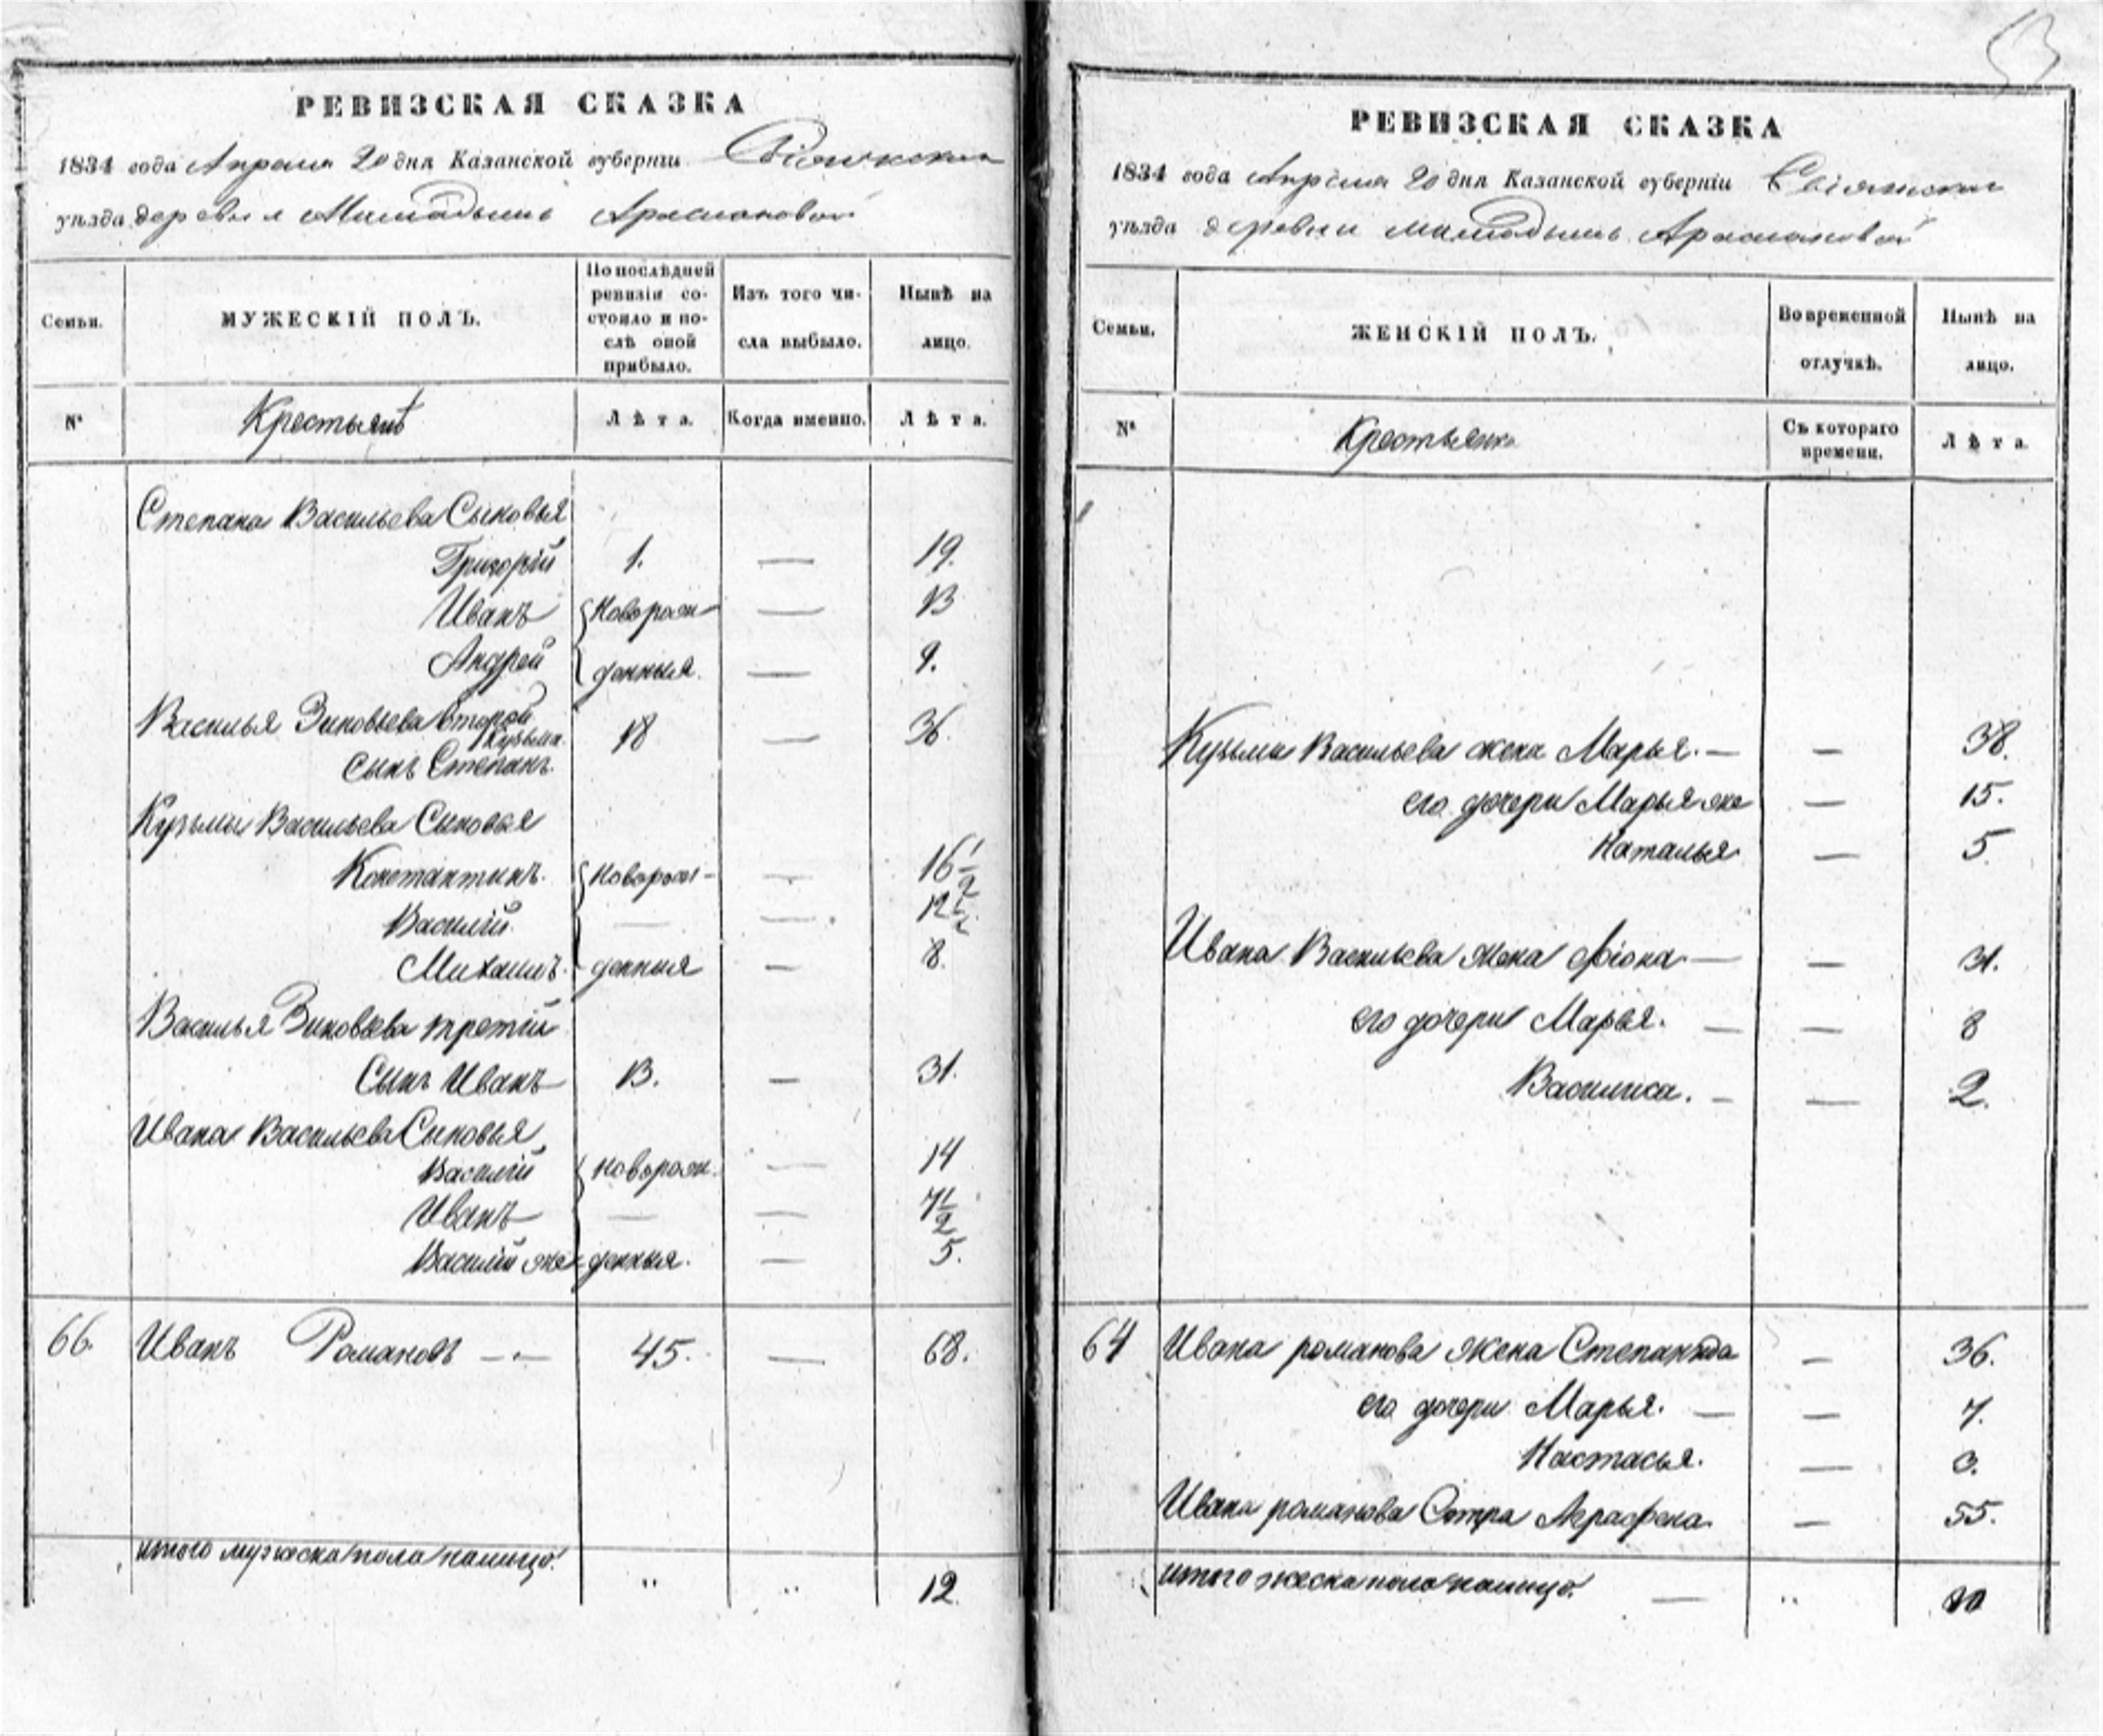 РЕВИЗСКАЯ СКАЗКА
1834 года Апреля 20 дня Казанской губерніи
уѣзда деревня
Семьи.
МУЖЕСКІЙ ПОЛЪ.
По послѣдней
ревизіи со-
стояло и по-
слѣ оной
прибыло.
Изъ того чи-
сла выбыло.
Нынѣ на
лицо.
№
Крестьянѣ
Лѣта.
Когда именно.
Лѣта.
Степана Васильева Сыновья
Григорій 1. — 19.
Иванъ Новорож- — 13
Андрей денныя. — 9.
Василья Зиновьева второй 18 — 36.
Кузьма
сынъ Степанъ.
Кузьмы Васильева Сыновья
Константинъ. Новорож- — 16 1/2
Василій — — 12 1/2
Михаилъ. денныя — 8.
Василья Зиновьева третій
Сынъ Иванъ 13. — 31.
Ивана Васильева Сыновья
Василій новорож. — 14
Иванъ — — 7 1/2
Василій же денныя. — 5.
66. Иванъ Романовъ — 45. — 68.
итого мужеска пола налицо. " " 12
РЕВИЗСКАЯ СКАЗКА
1834 года Апреля 20 дня Казанской губерніи Свіяжскаго
уѣзда деревни
Семьи.
ЖЕНСКІЙ ПОЛЪ.
Во временной
отлучкѣ.
Нынѣ на
лицо.
№
Крестьянки
Съ котораго
времени.
Лѣта.
Кузьмы Васильева жена Марья. — — 38.
его дочери Марья же — 15.
Наталья — 5.
Ивана Васильева жена Фіона — — 31.
его дочери Марья. — — 8
Василиса. — — 2.
64 Ивана романова жена Степанида — 36.
его дочери Марья. — — 7.
Настасья. — 3.
Ивана романова Сестра Аграфена — 55.
итого женска пола налицо. — " 10